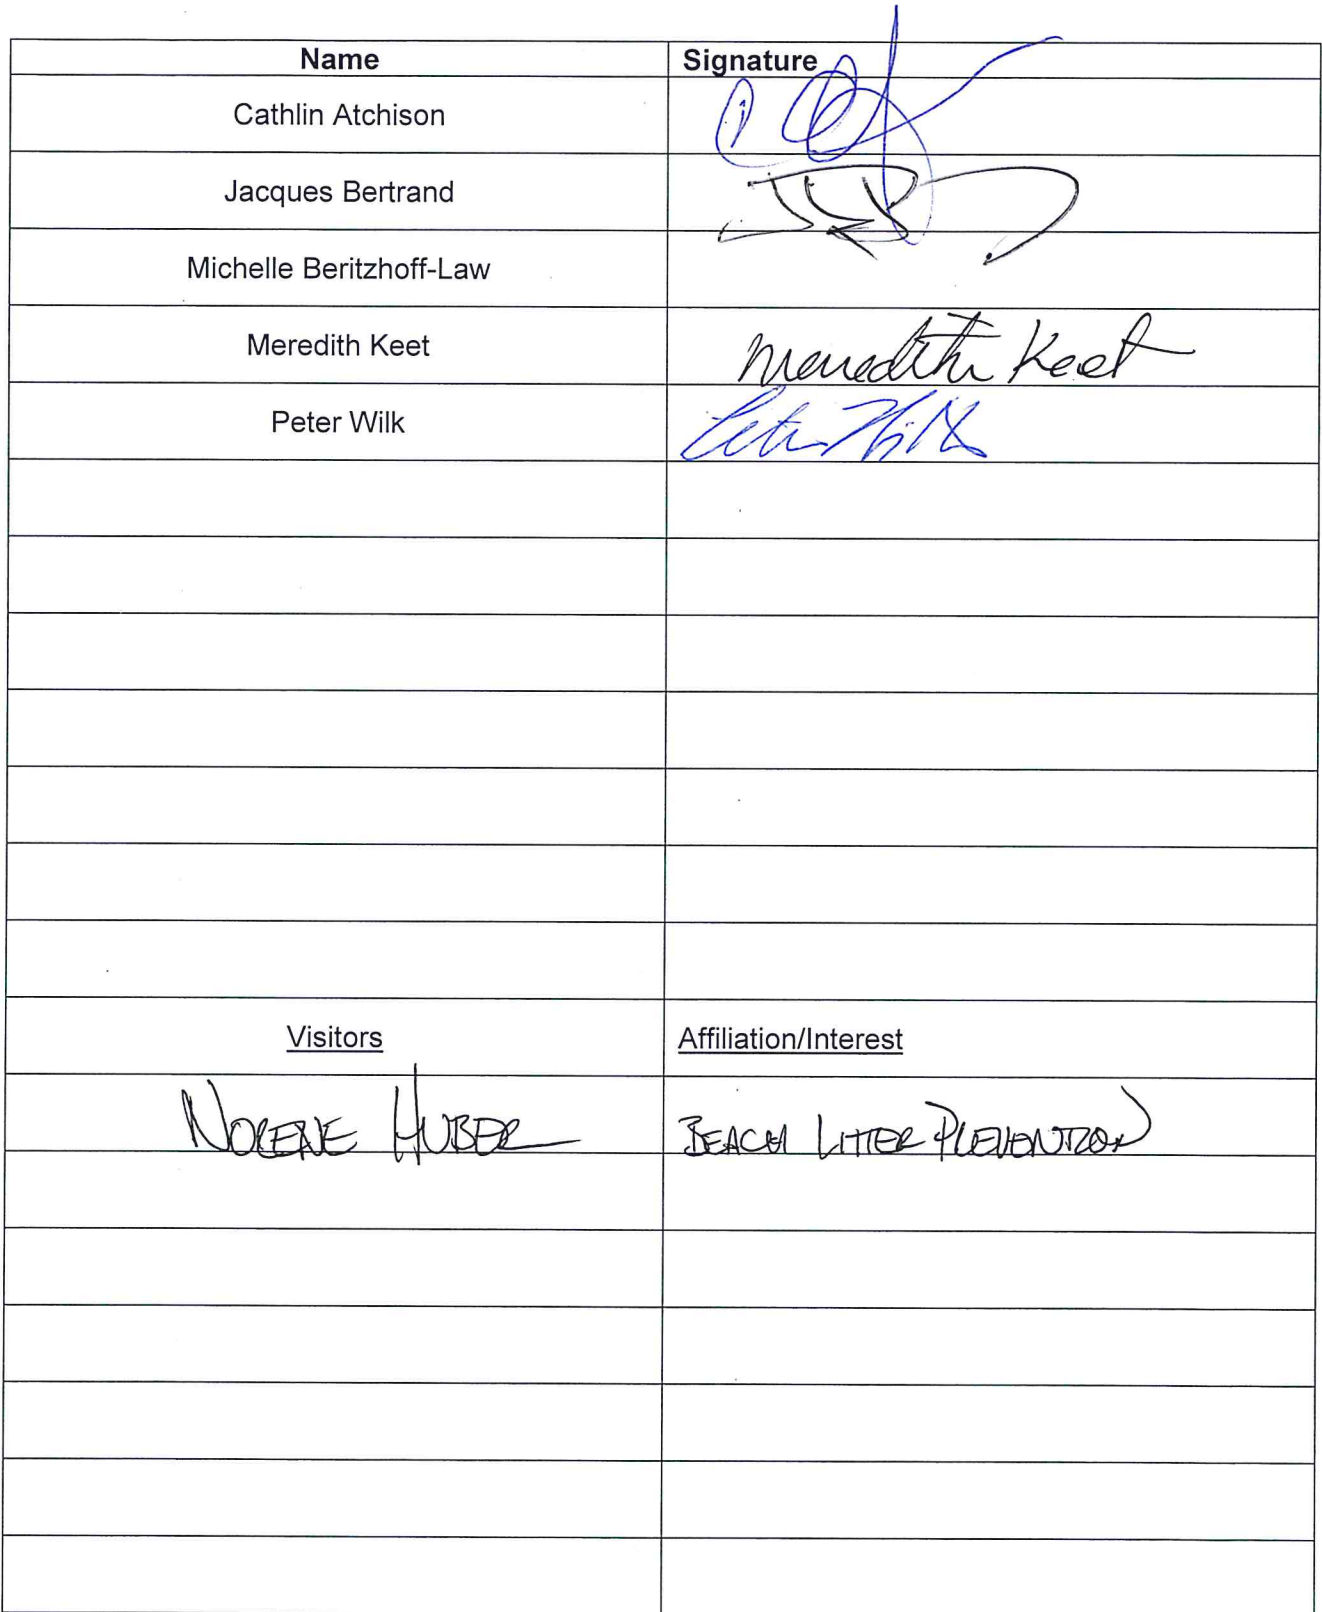 Name Signature
Cathlin Atchison
Jacques Bertrand
Michelle Beritzhoff-Law
Meredith Keet Meredith Keet
Peter Wilk Peter Wilk
Visitors Affiliation/Interest
NORENE HUBER BEACH LITTER PREVENTION